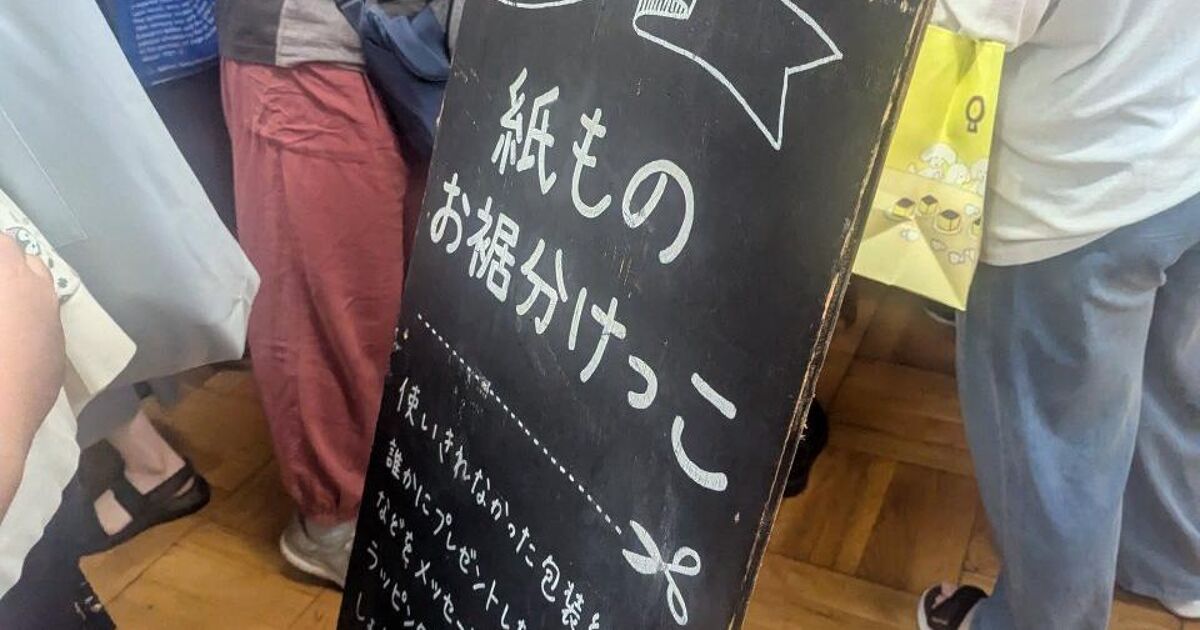 紙もの
お裾分けっこ
使いきれなかった包装
誰かにプレゼントし
などをメッセー
ラッピン
し